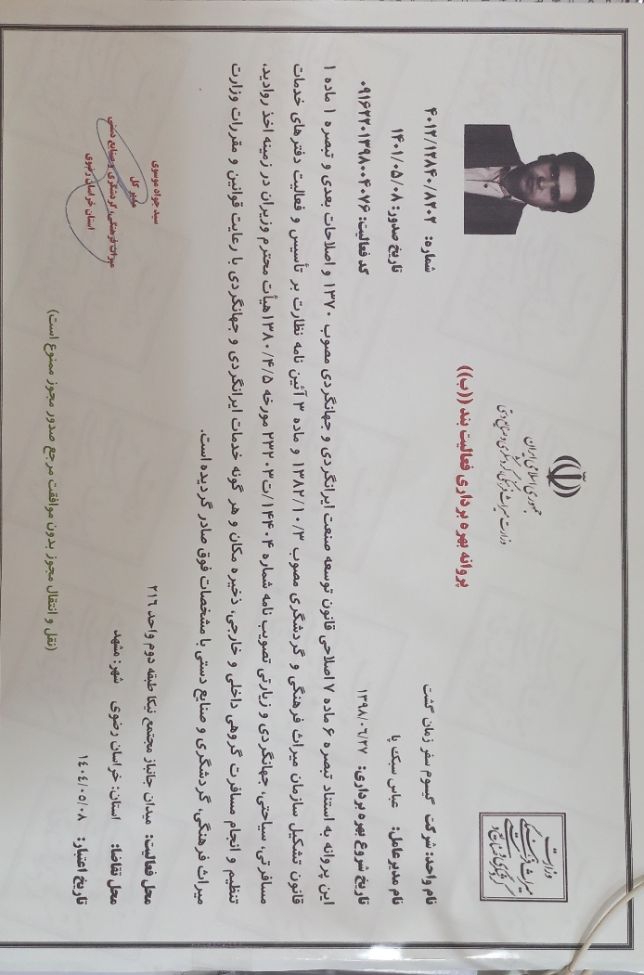 جمهوری اسلامی ایران
وزارت میراث فرهنگی، گردشگری و صنایع دستی
پروانه بهره برداری فعالیت بند ((ب))
شماره: ۴۰۱۲/۱۲۸۴۰/۸۲۰۲
تاریخ صدور: ۱۴۰۱/۰۵/۰۸
کد فعالیت: ۰۹۱۶۲۲۰۱۳۹۸۰۰۴۰۷۶
نام واحد: شرکت گیسوم سفر زمان گشت
نام مدیرعامل: عباس سبک پا
تاریخ شروع بهره برداری: ۱۳۹۸/۰۶/۲۷
این پروانه به استناد تبصره ۶ ماده ۷ اصلاحی قانون توسعه صنعت ایرانگردی و جهانگردی مصوب ۱۳۷۰ و اصلاحات بعدی و تبصره ۱ ماده ۱
قانون تشکیل سازمان میراث فرهنگی و گردشگری مصوب ۱۳۸۲/۱۰/۳ و ماده ۳ آئین نامه نظارت بر تأسیس و فعالیت دفترهای خدمات
مسافرتی، سیاحتی، جهانگردی و زیارتی تصویب نامه شماره ۱۴۴۰۴/ت۲۳۲۰۳ مورخه ۱۳۸۰/۴/۵ هیأت محترم وزیران در زمینه اخذ روادید،
تنظیم و انجام مسافرت گروهی داخلی و خارجی، ذخیره مکان و هر گونه خدمات ایرانگردی و جهانگردی با رعایت قوانین و مقررات وزارت
میراث فرهنگی، گردشگری و صنایع دستی با مشخصات فوق صادر گردیده است.
محل فعالیت: میدان جانباز مجتمع نیکا طبقه دوم واحد ۲۱۶
محل تقاضا: استان: خراسان رضوی شهر: مشهد
تاریخ اعتبار: ۱۴۰۴/۰۵/۰۸
سید جواد موسوی
مدیر کل
میراث فرهنگی، گردشگری و صنایع دستی
استان خراسان رضوی
(نقل و انتقال مجوز بدون موافقت مرجع صدور مجوز ممنوع است)